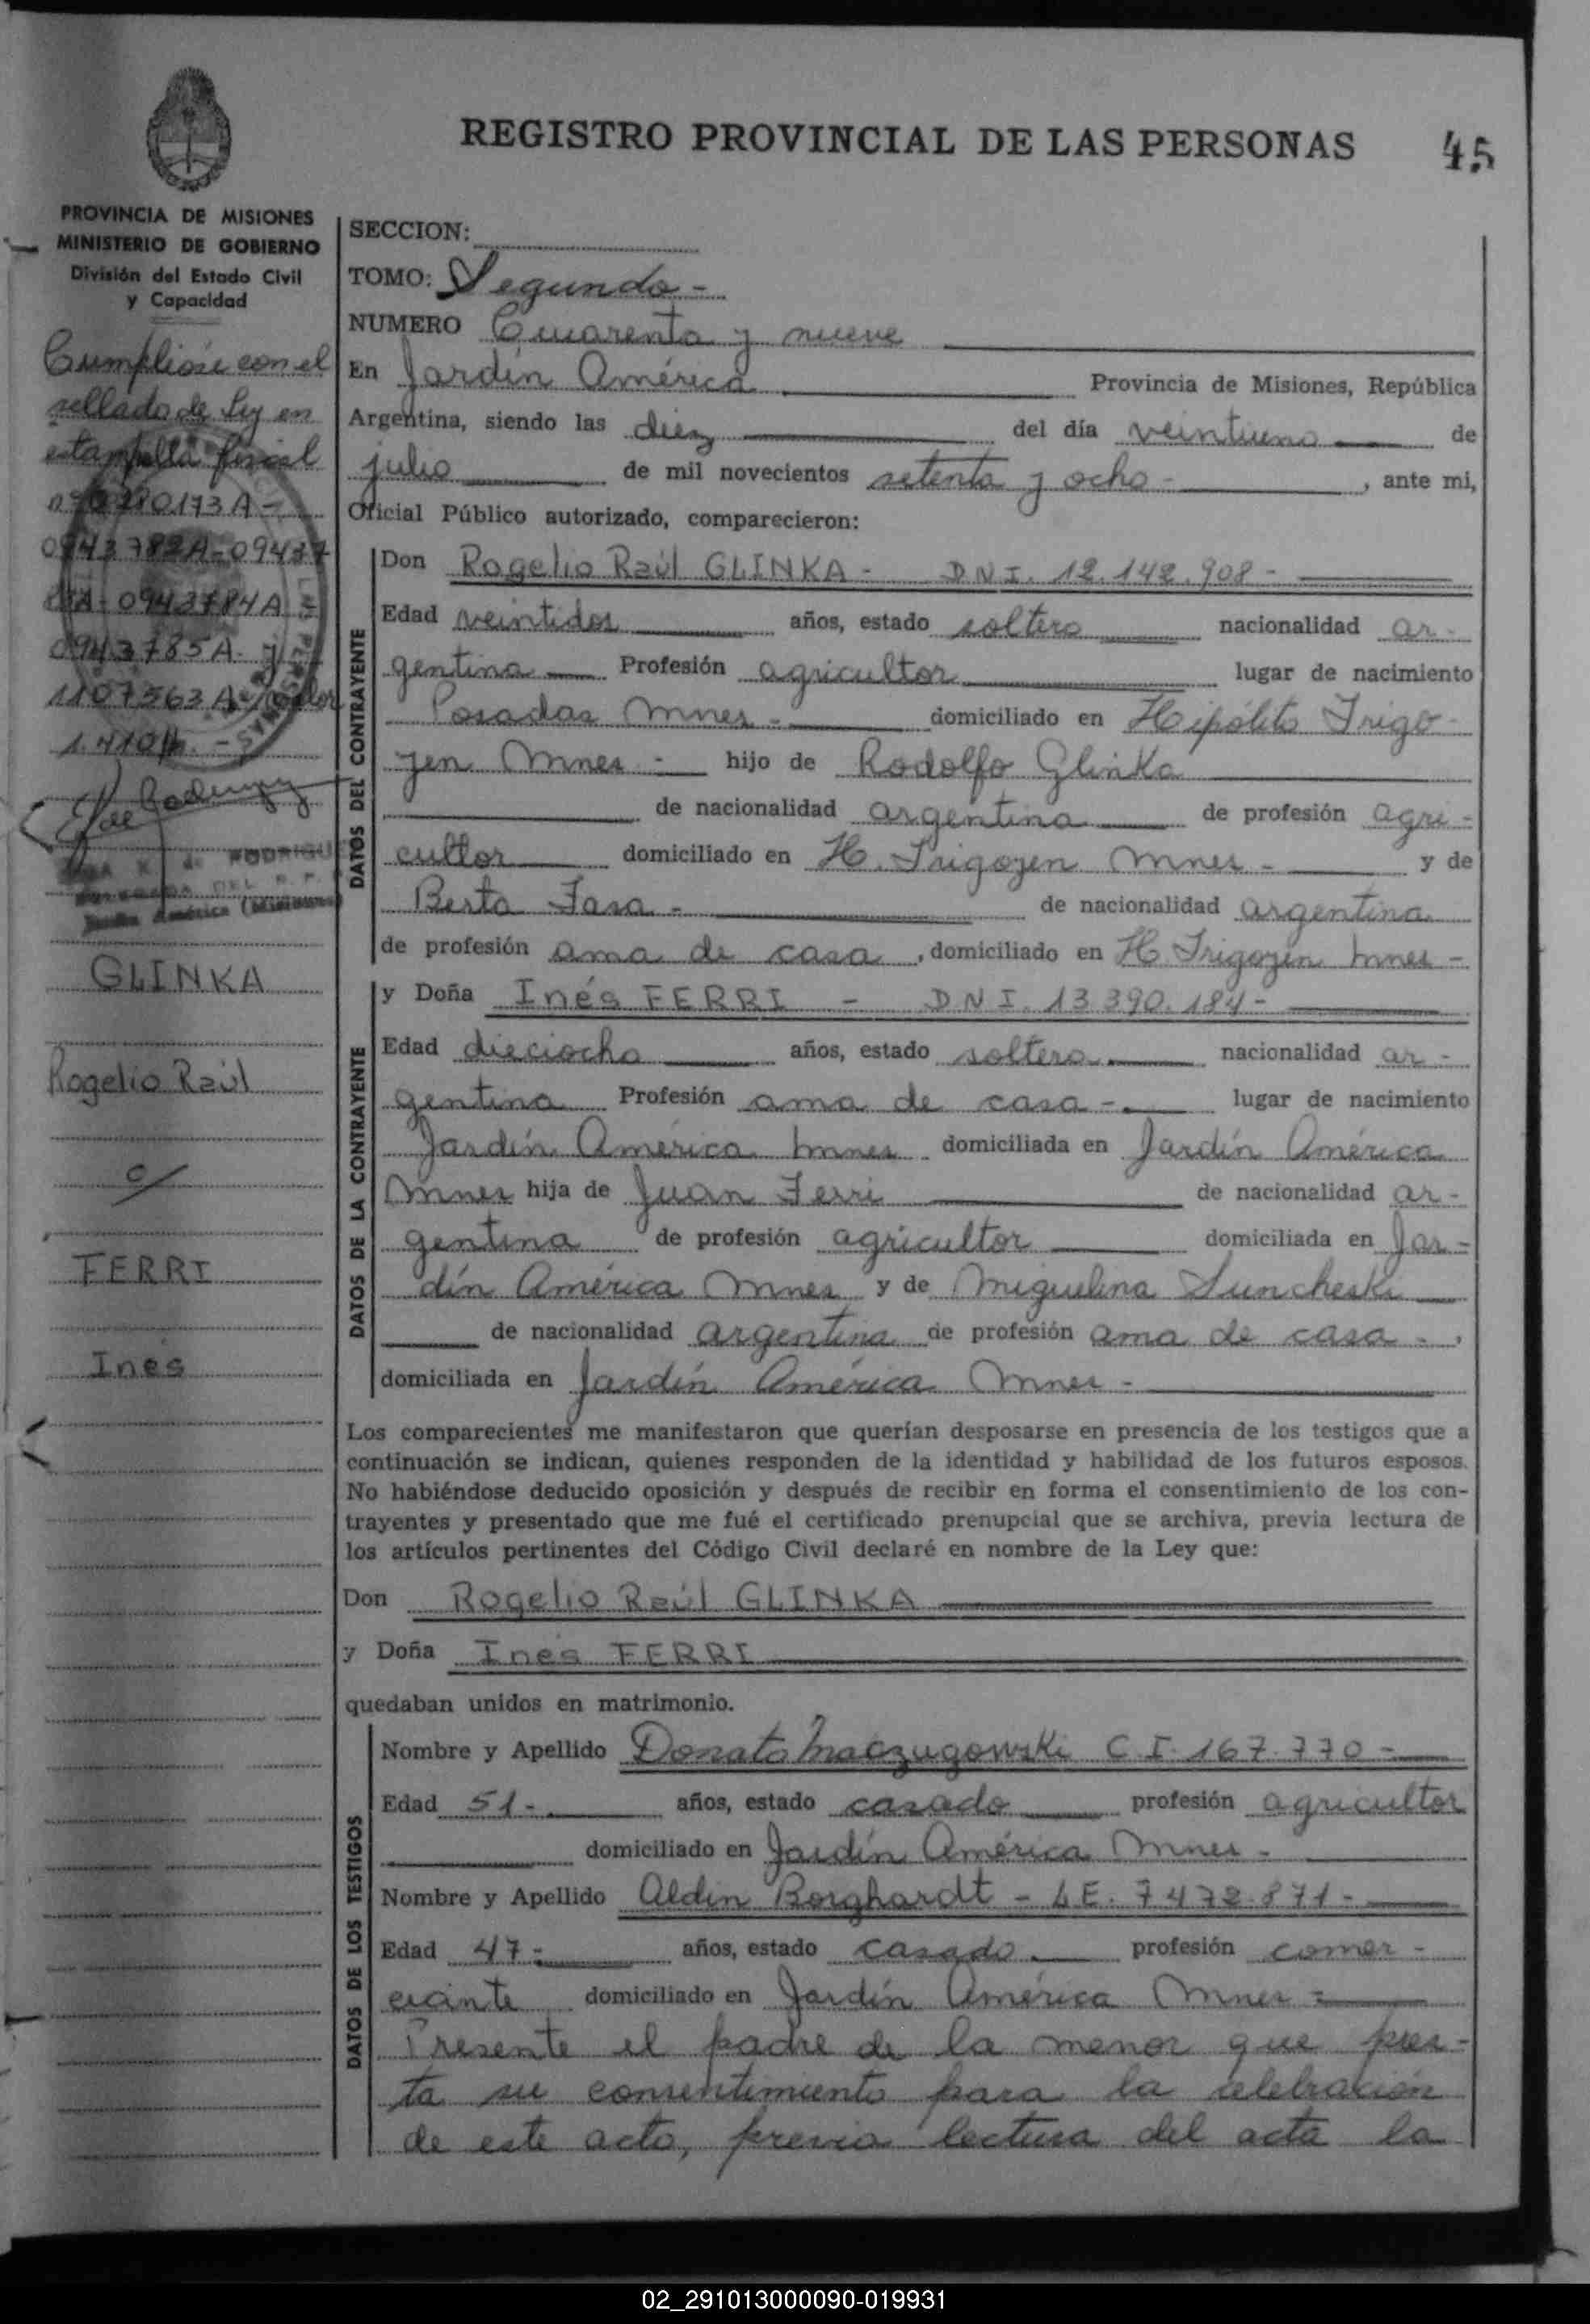 REGISTRO PROVINCIAL DE LAS PERSONAS 45
PROVINCIA DE MISIONES
MINISTERIO DE GOBIERNO
División del Estado Civil
y Capacidad
Cumplióse con el
sellado de Ley en
estampilla fiscal
0943782A-09437
0943784A
0943785A. y
1107563 A
GLINKA
Rogelio Raúl
c/
FERRI
Inés
SECCION:
TOMO: Segundo -
NUMERO Cuarenta y nueve
En Jardín América Provincia de Misiones, República
Argentina, siendo las diez del día veintiuno de
julio de mil novecientos setenta y ocho - , ante mi,
Oficial Público autorizado, comparecieron:
DATOS DEL CONTRAYENTE
Don Rogelio Raúl GLINKA - DNI. 12.142.908 -
Edad veintidos años, estado soltero nacionalidad ar-
gentina Profesión agricultor lugar de nacimiento
Posadas Mnes - domiciliado en Hipólito Irigo-
yen Mnes - hijo de Rodolfo Glinka
de nacionalidad argentina de profesión agri-
cultor domiciliado en H. Irigoyen Mnes - y de
Berta Fasa - de nacionalidad argentina
de profesión ama de casa , domiciliado en H. Irigoyen Mnes -
DATOS DE LA CONTRAYENTE
y Doña Inés FERRI - DNI. 13.390.184 -
Edad dieciocho años, estado soltera nacionalidad ar-
gentina Profesión ama de casa - lugar de nacimiento
Jardín América Mnes domiciliada en Jardín América
Mnes hija de Juan Ferri de nacionalidad ar-
gentina de profesión agricultor domiciliada en Jar-
dín América Mnes y de Miguelina Suncheski
de nacionalidad argentina de profesión ama de casa - ,
domiciliada en Jardín América Mnes -
Los comparecientes me manifestaron que querían desposarse en presencia de los testigos que a
continuación se indican, quienes responden de la identidad y habilidad de los futuros esposos.
No habiéndose deducido oposición y después de recibir en forma el consentimiento de los con-
trayentes y presentado que me fué el certificado prenupcial que se archiva, previa lectura de
los artículos pertinentes del Código Civil declaré en nombre de la Ley que:
Don Rogelio Raúl GLINKA
y Doña Inés FERRI
quedaban unidos en matrimonio.
DATOS DE LOS TESTIGOS
Nombre y Apellido Donato Maczugowski C.I. 167.770 -
Edad 51 - años, estado casado profesión agricultor
domiciliado en Jardín América Mnes -
Nombre y Apellido Aldin Borghardt - L.E. 7.472.871 -
Edad 47 - años, estado casado profesión comer-
ciante domiciliado en Jardín América Mnes -
Presente el padre de la menor que pres-
ta su consentimiento para la celebración
de este acto, previa lectura del acta la
02_291013000090-019931